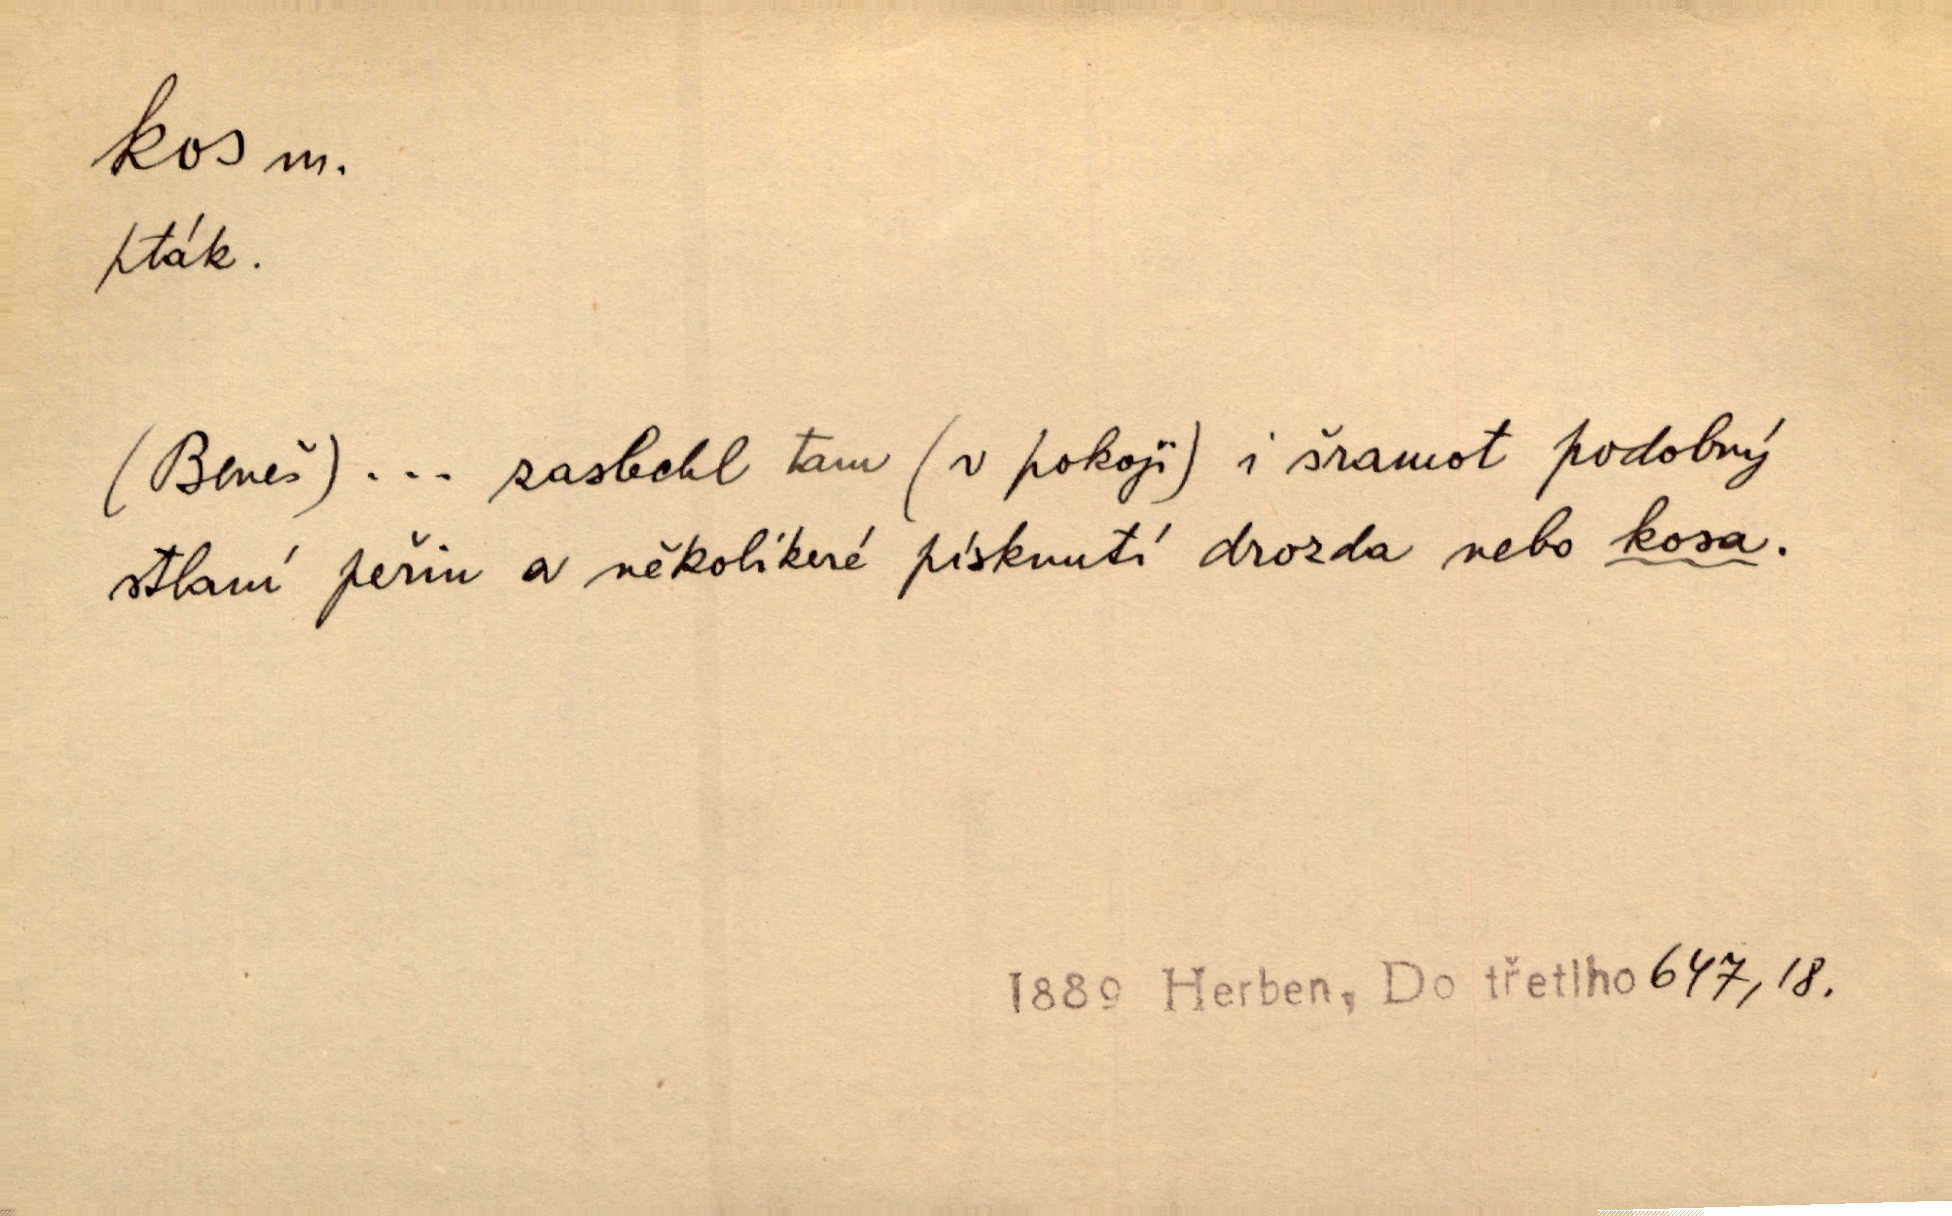 kos m.
pták.
(Beneš) ... zaslechl tam (v pokoji) i šramot podobný
stlaní peřin a několikeré písknutí drozda nebo kosa.
1889 Herben, Do třetího 647, 18.